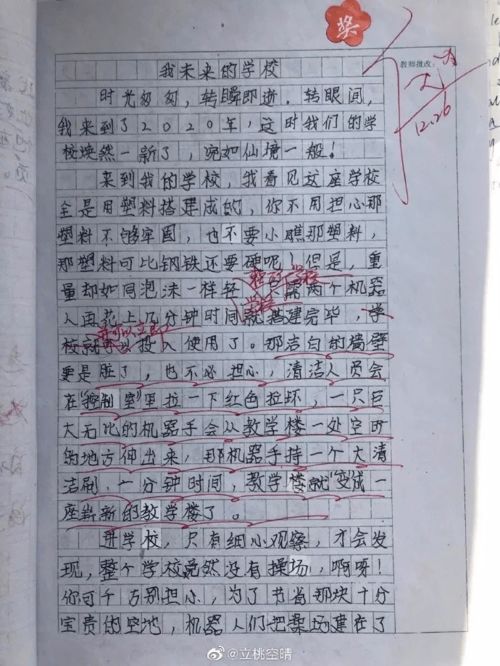 奖
教师批改：
12.26
我未来的学校
时光匆匆，转瞬即逝。转眼间，
我来到了2020年，这时我们的学
校焕然一新了，宛如仙境一般！
来到我的学校，我看见这座学校
全是用塑料搭建成的，你不用担心那
塑料不够牢固，也不要小瞧那塑料，
那塑料可比钢铁还要硬呢！但是，重
量却如同泡沫一样轻，只需两个机器
人再花上几分钟时间就搭建完毕，学
校就可以投入使用了。那洁白的墙壁
要是脏了，也不必担心，清洁人员会
在“控制室”里拉一下红色拉环，一只巨
大无比的机器手会从教学楼一处空旷
的地方伸出来，那机器手持一个大清
洁刷，一分钟时间，教学楼就“变”成一
座崭新的教学楼了。
进学校，只有细小观察，才会发
现，整个学校竟然没有操场，啊呀！
你可千万别担小，为了节省那块十分
宝贵的空地，机器人们把操场建在了
@立桃空晴